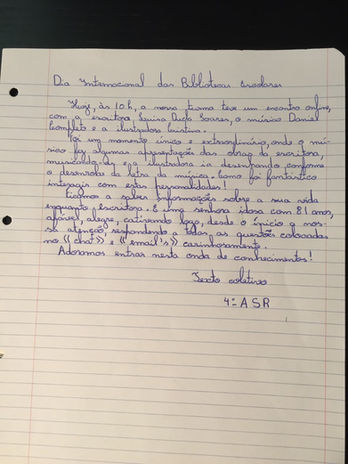 Dia Internacional das Bibliotecas Escolares
Hoje, às 10 h, a nossa turma teve um encontro online,
com a escritora Luísa Ducla Soares, o músico Daniel
Completo e a ilustradora Cristina.
Foi um momento único e extraordinário, onde o mú-
sico fez algumas apresentações das obras da escritora,
musicadas e a ilustradora ia desenhando, conforme
o desenrolar da letra da música. Como foi fantástico
interagir com estas personalidades!
Ficamos a saber informações sobre a sua vida
enquanto escritora. É uma senhora idosa com 81 anos,
afável, alegre, cativando logo, desde o início a nos-
sa atenção, respondendo a todas as questões colocadas
no «chat» e «email's» carinhosamente.
Adoramos entrar nesta onda de conhecimentos!
Texto coletivo
4º A SR